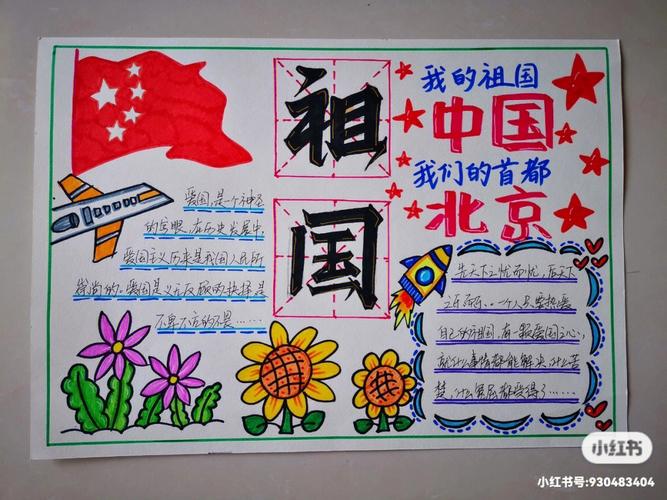 祖
国
我的祖国
中国
我们的首都
北京
爱国,是一个神圣
的字眼,在历史发展中,
爱国主义历来是我国人民所
崇尚的。爱国是义无反顾的抉择,是
先天下之忧而忧,后天下
之乐而乐。一个人只要热爱
自己的祖国,有一颗爱国之心,
就什么事情都能解决,什么苦
楚,什么冤屈都受得了……
小红书
小红书号:930483404